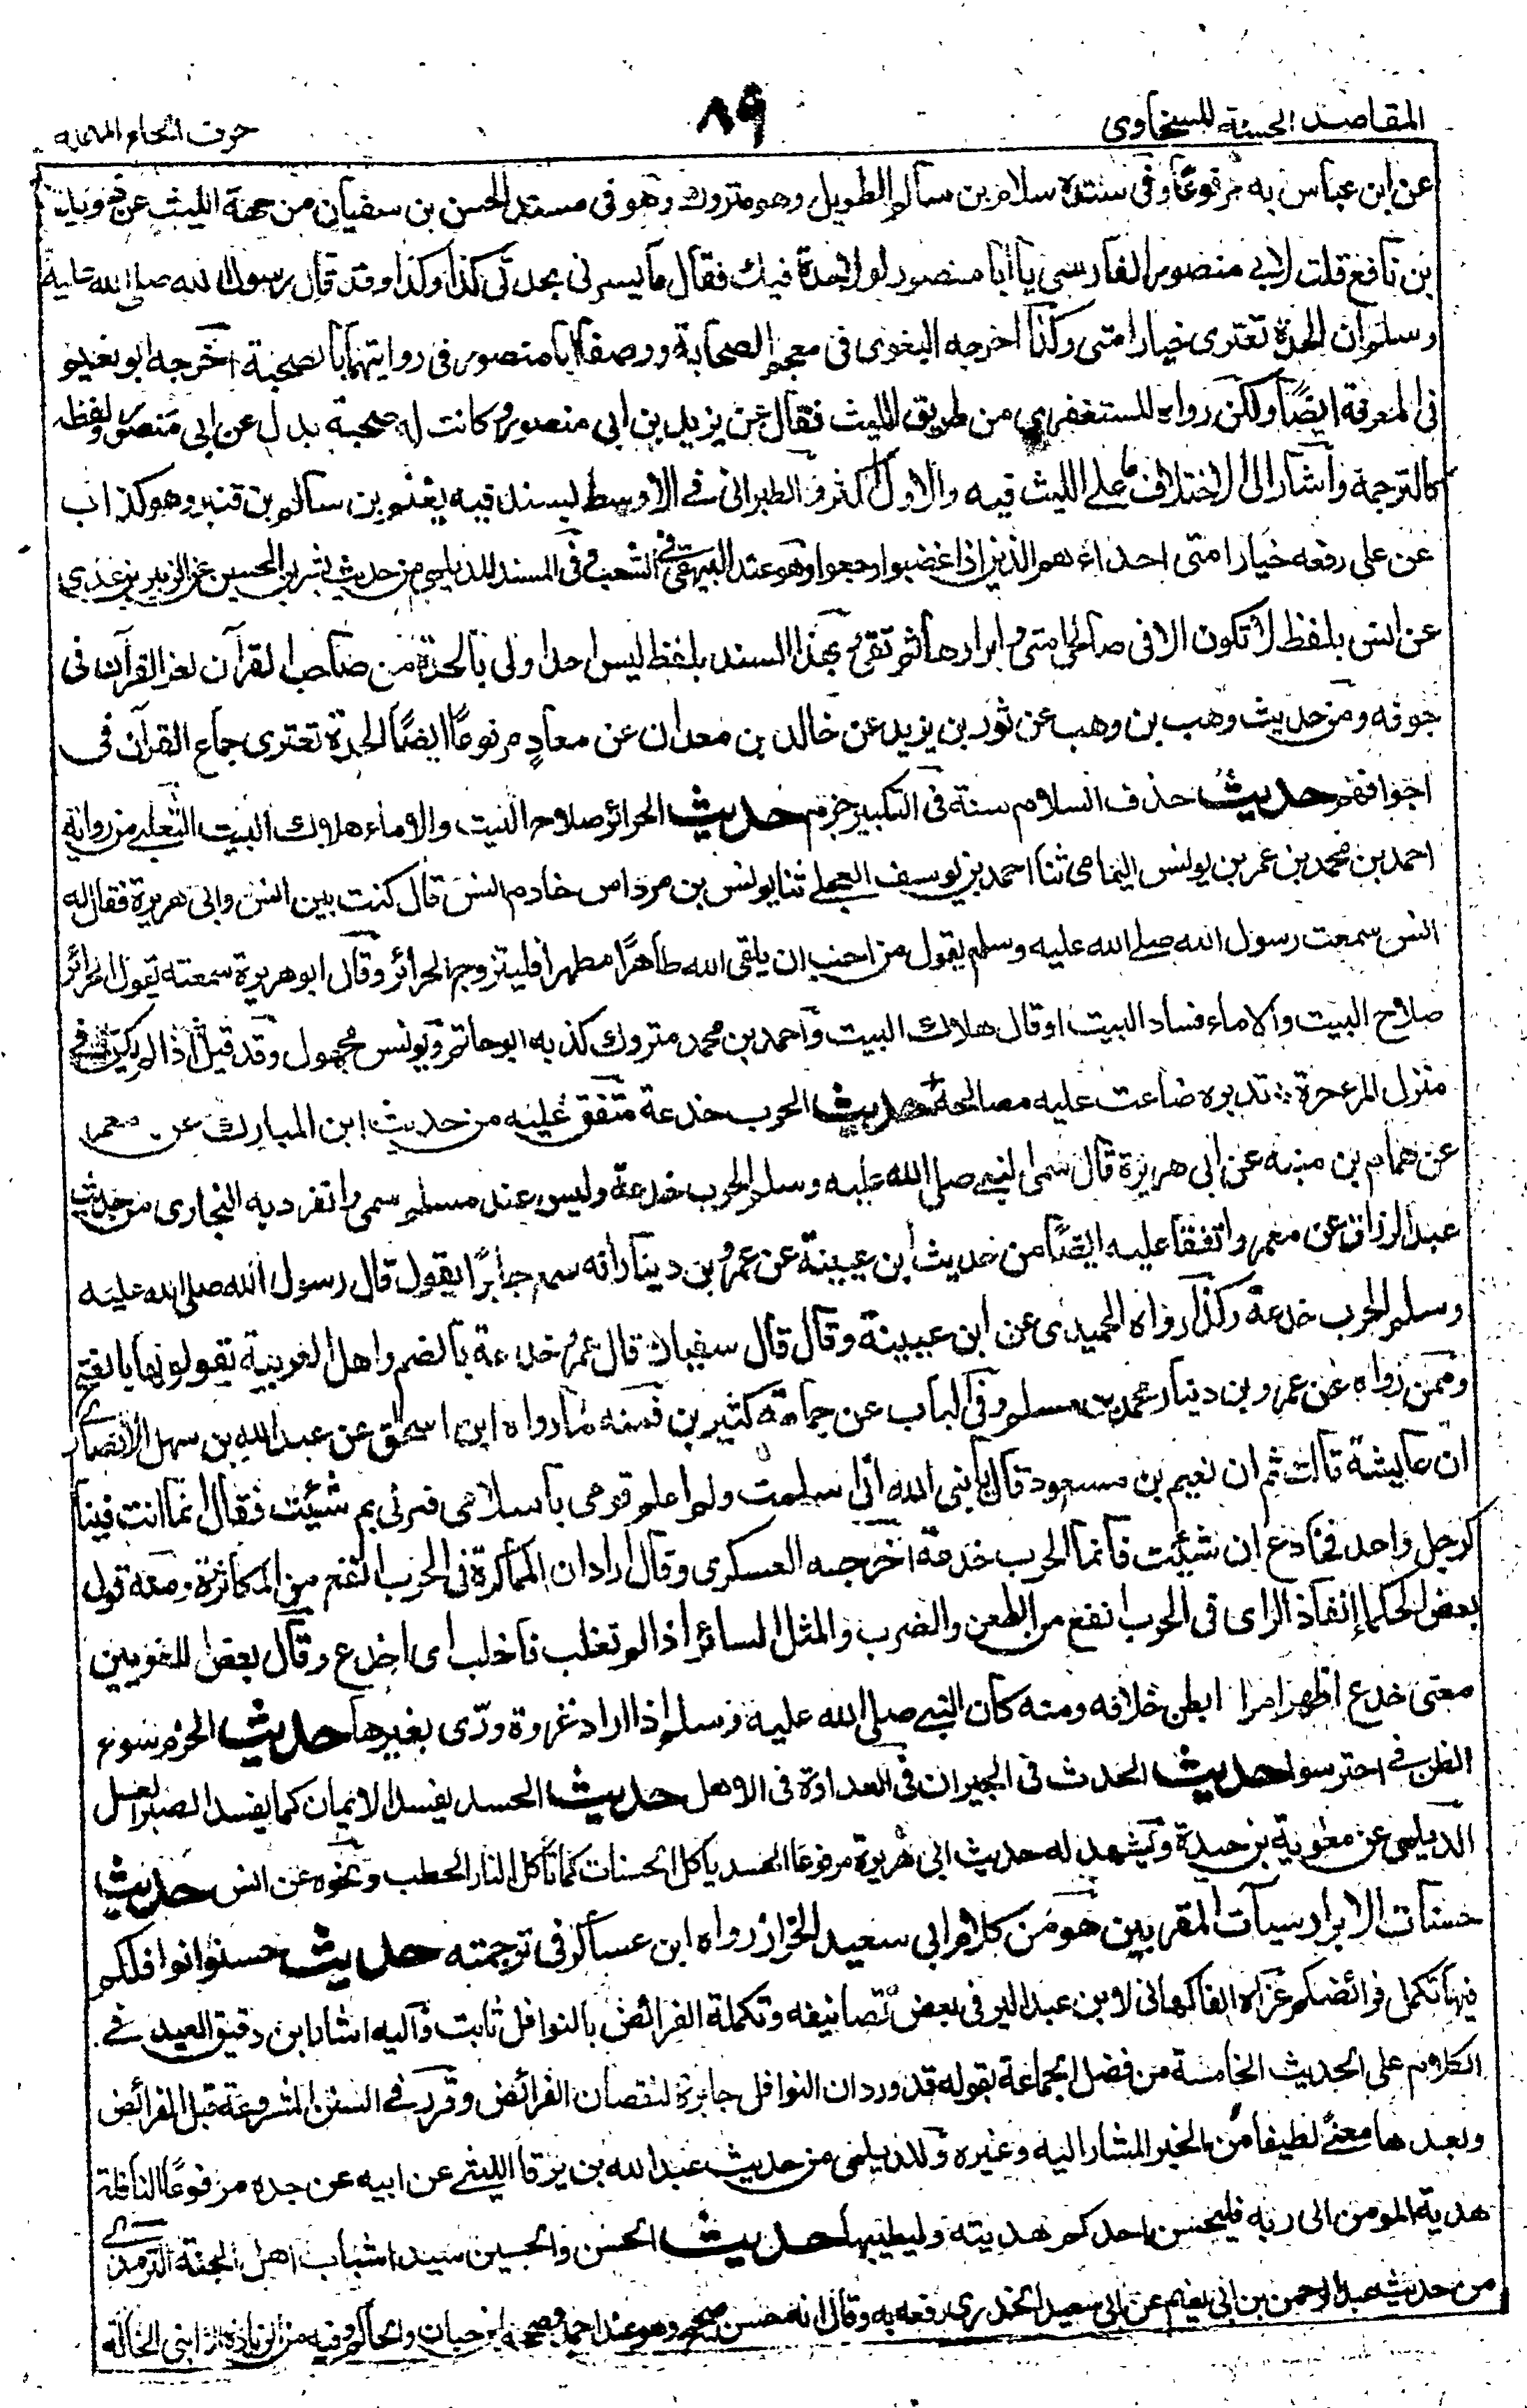 المقاصد الحسنة للسخاوى
٨٩
حرف الحاء المهملة
عن ابن عباس به مرفوعًا وفى سنده سلام بن سالم الطويل وهو متروك وهو فى مسند الحسن بن سفيان من جهة الليث عن دويد
بن نافع قلت لابى منصور الفارسى يا ابا منصور لولا حدة فيك فقال ما يسرنى بحدتى كذا وكذا وقد قال رسول الله صلى الله عليه
وسلم ان الحدة تعترى خيار امتى وكذا اخرجه البغوى فى معجم الصحابة ووصفا ابا منصور فى روايتهما بالصحبة اخرجه ابو نعيم
فى المعرفة ايضًا ولكن رواه المستغفرى من طريق الليث فقال عن يزيد بن ابى منصور وكانت له صحبة بدل عن ابى منصور ولفظه
كالترجمة واشار الى الاختلاف على الليث فيه والاول اكثر والطبرانى فى الاوسط بسند فيه يغنم بن سالم بن قنبر وهو كذاب
عن على رفعه خيار امتى احداءهم الذين اذا غضبوا رجعوا وهو عند البيهقى فى الشعب وفى المسند للديلمى من حديث بشر بن الحسين عن الزبير بن عدى
عن انس بلفظ لا تكون الا فى صالحى امتى وابرارها ثم تفئ بهذا السند بلفظ ليس احد اولى بالحدة من صاحب القرآن لعز القرآن فى
جوفه ومن حديث وهب بن وهب عن ثور بن يزيد عن خالد بن معدان عن معاذ مرفوعًا ايضًا الحدة تعترى جماع القرآن فى
اجوافهم حديث حذف السلام سنة فى التكبير جزم حديث الحرائر صلاح البيت والاماء هلاك البيت الثعلبى من رواية
احمد بن محمد بن عمر بن يونس اليمامى ثنا احمد بن يوسف العجلى ثنا يونس بن مرداس خادم انس قال كنت بين انس وابى هريرة فقال له
انس سمعت رسول الله صلى الله عليه وسلم يقول من احب ان يلقى الله طاهرًا مطهرا فليتزوج الحرائر وقال ابو هريرة سمعته يقول الحرائر
صلاح البيت والاماء فساد البيت اوقال هلاك البيت واحمد بن محمد متروك كذبه ابو حاتم ويونس مجهول وقد قيل اذا لم يكن فى
منزل المرء حرة ∴ تدبره ضاعت عليه مصالحه حديث الحرب خدعة متفق عليه من حديث ابن المبارك عن معمر
عن همام بن منبه عن ابى هريرة قال سمى النبى صلى الله عليه وسلم الحرب خدعة وليس عند مسلم سمى وانفرد به البخارى من حديث
عبد الرزاق عن معمر واتفقا عليه ايضًا من حديث ابن عيينة عن عمرو بن دينار انه سمع جابرًا يقول قال رسول الله صلى الله عليه
وسلم الحرب خدعة وكذا رواه الحميدى عن ابن عيينة وقال قال سفيان قال عمرو خدعة بالضم واهل العربية تقولونها بالفتح
وممن رواه عن عمرو بن دينار محمد بن مسلم وفى الباب عن جماعة كثيرين فمنه ما رواه ابن اسحاق عن عبد الله بن سهل الانصارى
ان عايشة قالت ثم ان نعيم بن مسعود قال يا نبى الله انى اسلمت ولم اعلم قومى باسلامى فمرنى بم شئت فقال انما انت فينا
كرجل واحد فخادع ان شئت فانما الحرب خدعة اخرجه العسكرى وقال اراد ان المماكرة فى الحرب انفع من المكاثرة ومعه قول
بعض الحكماء انفاذ الراى فى الحرب انفع من الطعن والضرب والمثل السائر اذا لم تغلب فاخلب اى اخدع وقال بعض اللغويين
معنى خدع اظهر امرا ابطن خلافه ومنه كان النبى صلى الله عليه وسلم اذا اراد غزوة ورّى بغيرها حديث الحزم سوء
الظن فى احترسوا حديث الحدث فى الجيران فى العداوة فى الاهل حديث الحسد يفسد الايمان كما يفسد الصبر العسل
الديلمى عن معوية بن حيدة ويشهد له حديث ابى هريرة مرفوعا الحسد ياكل الحسنات كما تاكل النار الحطب ونحوه عن انس حديث
حسنات الابرار سيآت المقربين هو من كلام ابى سعيد الخراز رواه ابن عساكر فى ترجمته حديث حسنوا نوافلكم
فبها تكمل فرائضكم عزاه الفاكهانى لابن عبد البر فى بعض تصانيفه وتكملة الفرائض بالنوافل ثابت واليه اشار ابن دقيق العيد فى
الكلام على الحديث الخامسة من فضل الجماعة بقوله قد ورد ان النوافل جابرة لنقصان الفرائض وقرر فى السنن المشروعة قبل الفرائض
وبعدها معنًى لطيفا من الخبر المشار اليه وغيره وللديلمى من حديث عبد الله بن يرفا الليثى عن ابيه عن جده مرفوعًا النافلة
هدية المومن الى ربه فليحسن احدكم هديته وليطيبها حديث الحسن والحسين سيدا شباب اهل الجنة الترمذى
من حديث عبد الرحمن بن ابى نعيم عن ابى سعيد الخدرى رفعه به وقال انه حسن صحيح وهو عند احمد وصححه ابن حبان والحاكم وفيه من الزيادة الا ابنى الخالة